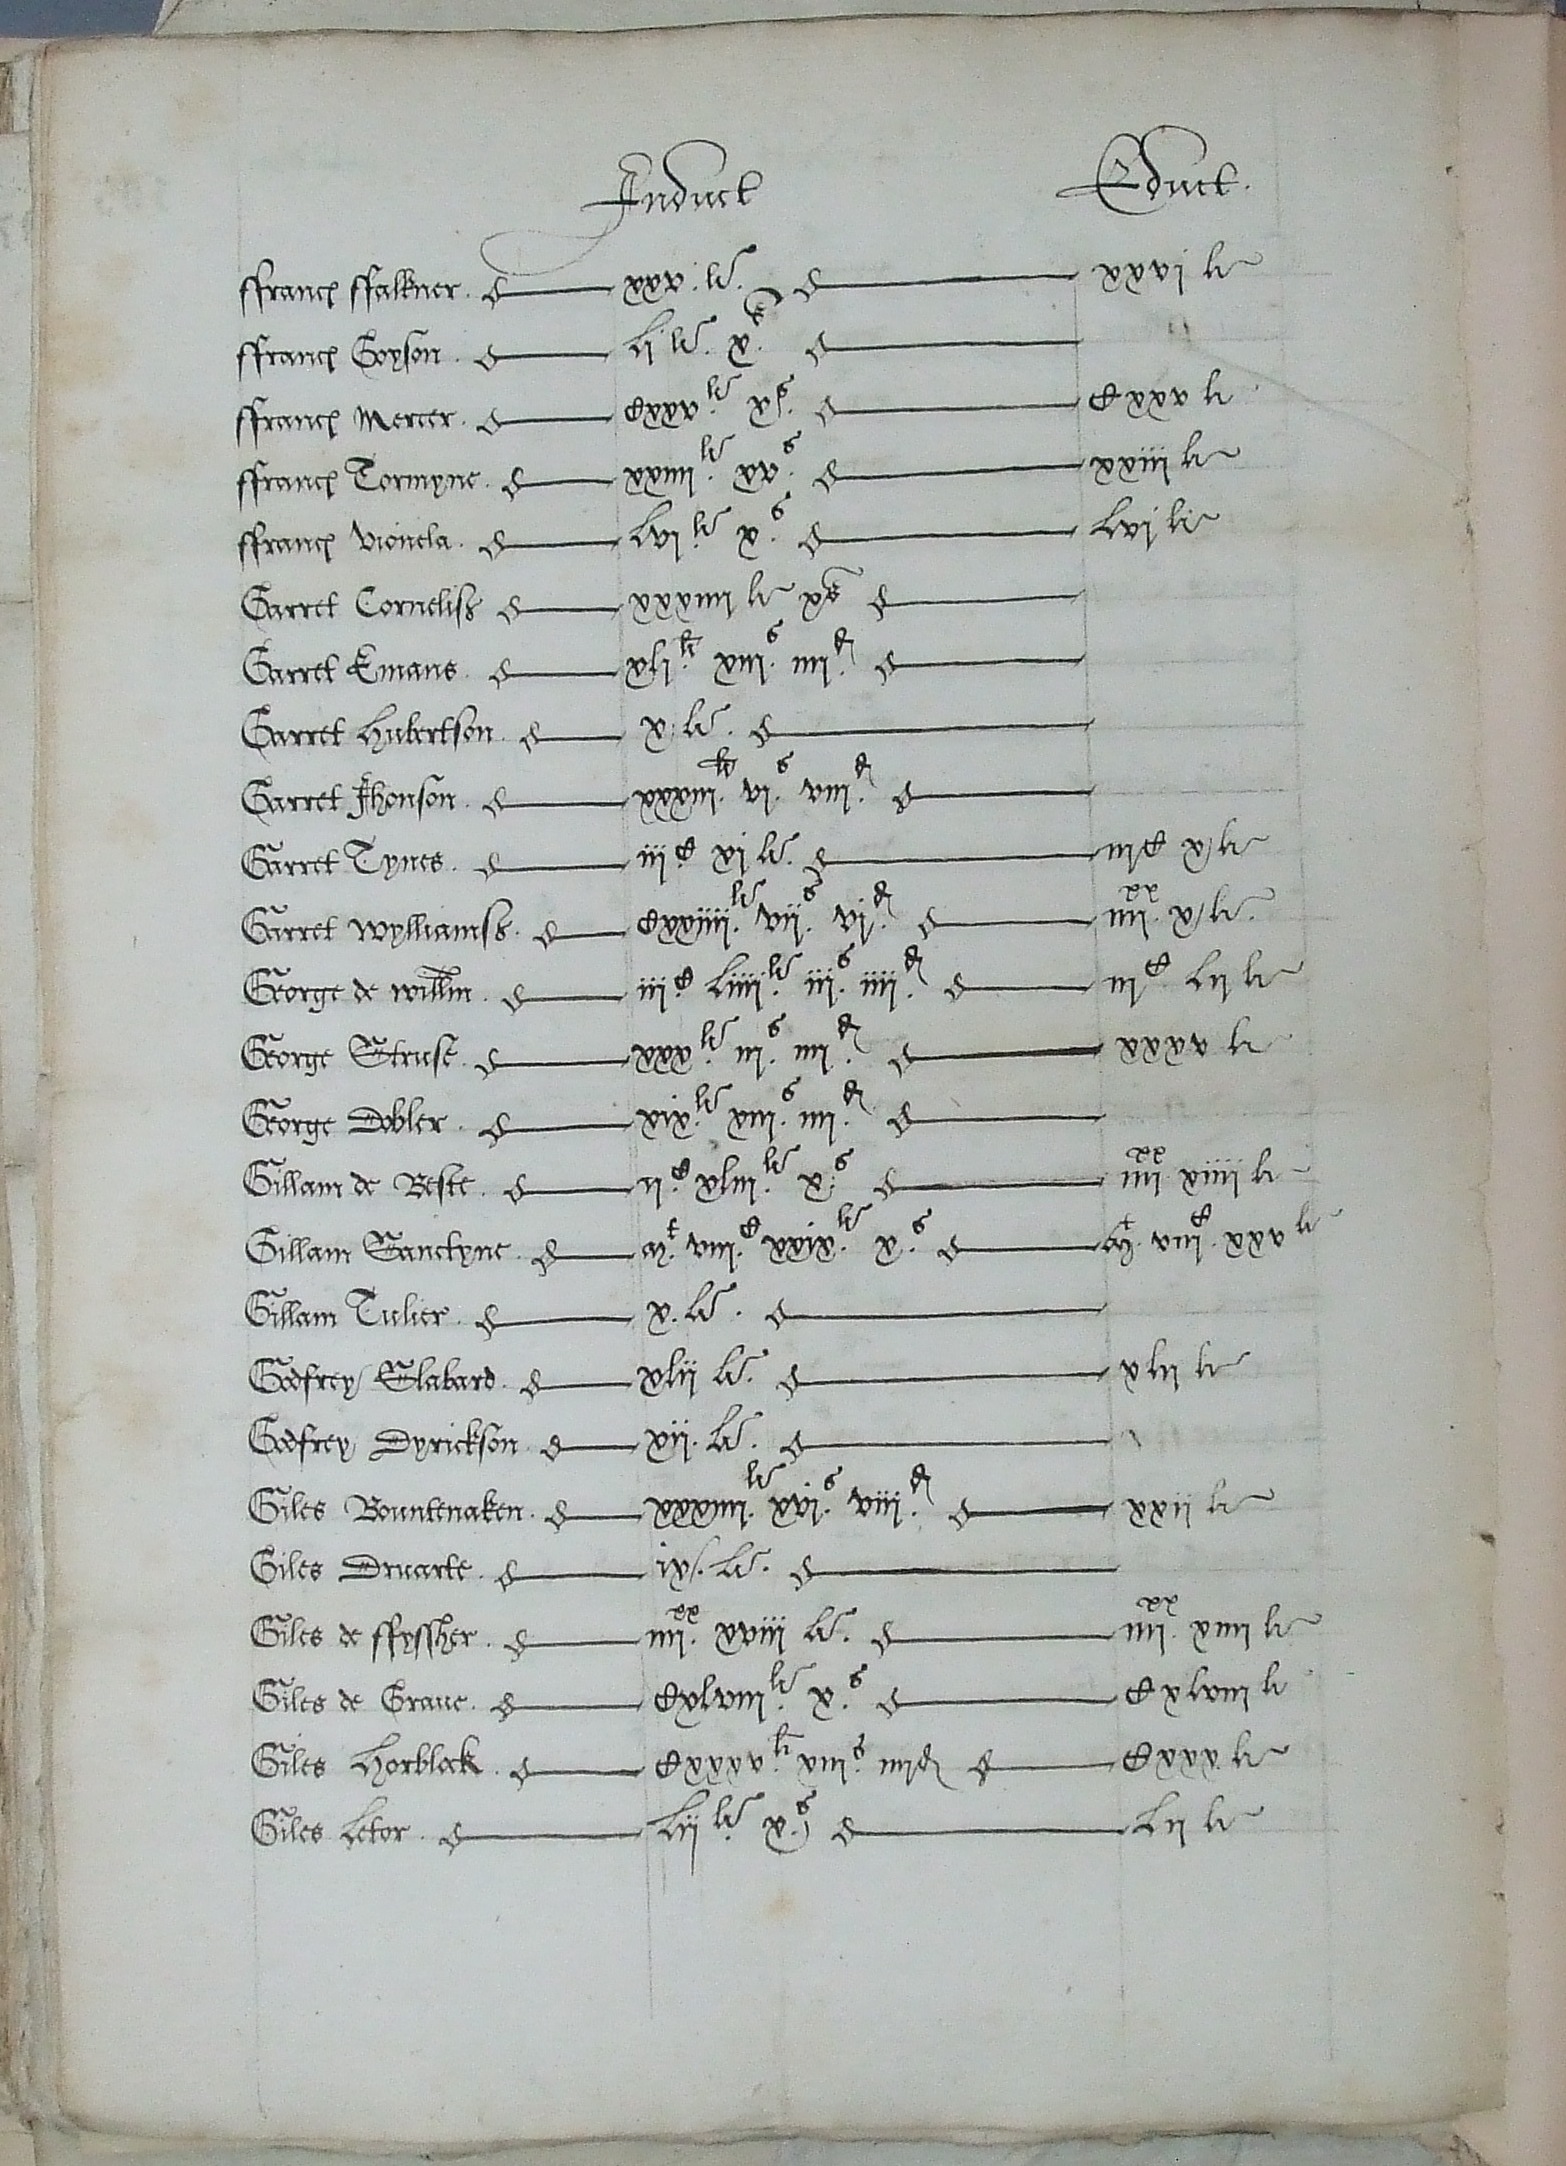 Induct Educt.
ffranc ffalkner. xxv. li. xxvj li
ffranc Goyson. Lj li. x s.
ffranc Mercer. Cxxv li. x s. Cxxv li
ffranc Tormyne. xxiiii li. xv s. xxiii li
ffranc Lvi li. x s. Lvj li
Garret Cornelis xxxiiii li xs
Garret Emans. xlj li. xiij s. iiij d.
Garret Hubertson. x li.
Garret Jhonson. xxxiii li. vi s. viii d.
Garret Tynes. iii C. xj li. iij C x li
Garret Wylliams. Cxxiiii li. vii s. vj d. iiij xx. x li.
George de Willm. iii C. Liiii li. iii s. iiii d. iij C Lij li
George Struse. xxx li. iij s. iiij d. xxxv li
George Dobler. xix li. xiij s. iiij d.
Gillam de Beste. ij C. xliij li. x s. iiij xx. xiiij li
Gillam Sanctyne. viij C. xxix li. x s. viij C. xxv li
Gillam Tulier. x. li.
Godfrey Slabard. xlii li. xlij li
Godfrey Dyrickson. xij. li.
Giles Bountenaken. xxxiiij li. xvj s. viii d. xxij li
Giles Druarte. ix. li.
Giles de ffyssher. iiij xx. xviii li. iiij xx. xiiij li
Giles de Graue. Cxlviij li. x s. Cxlviij li
Giles Horblock. Cxxxv li. xiij s. iiij d Cxxx li
Giles Letor. Lij li. x s. Lij li